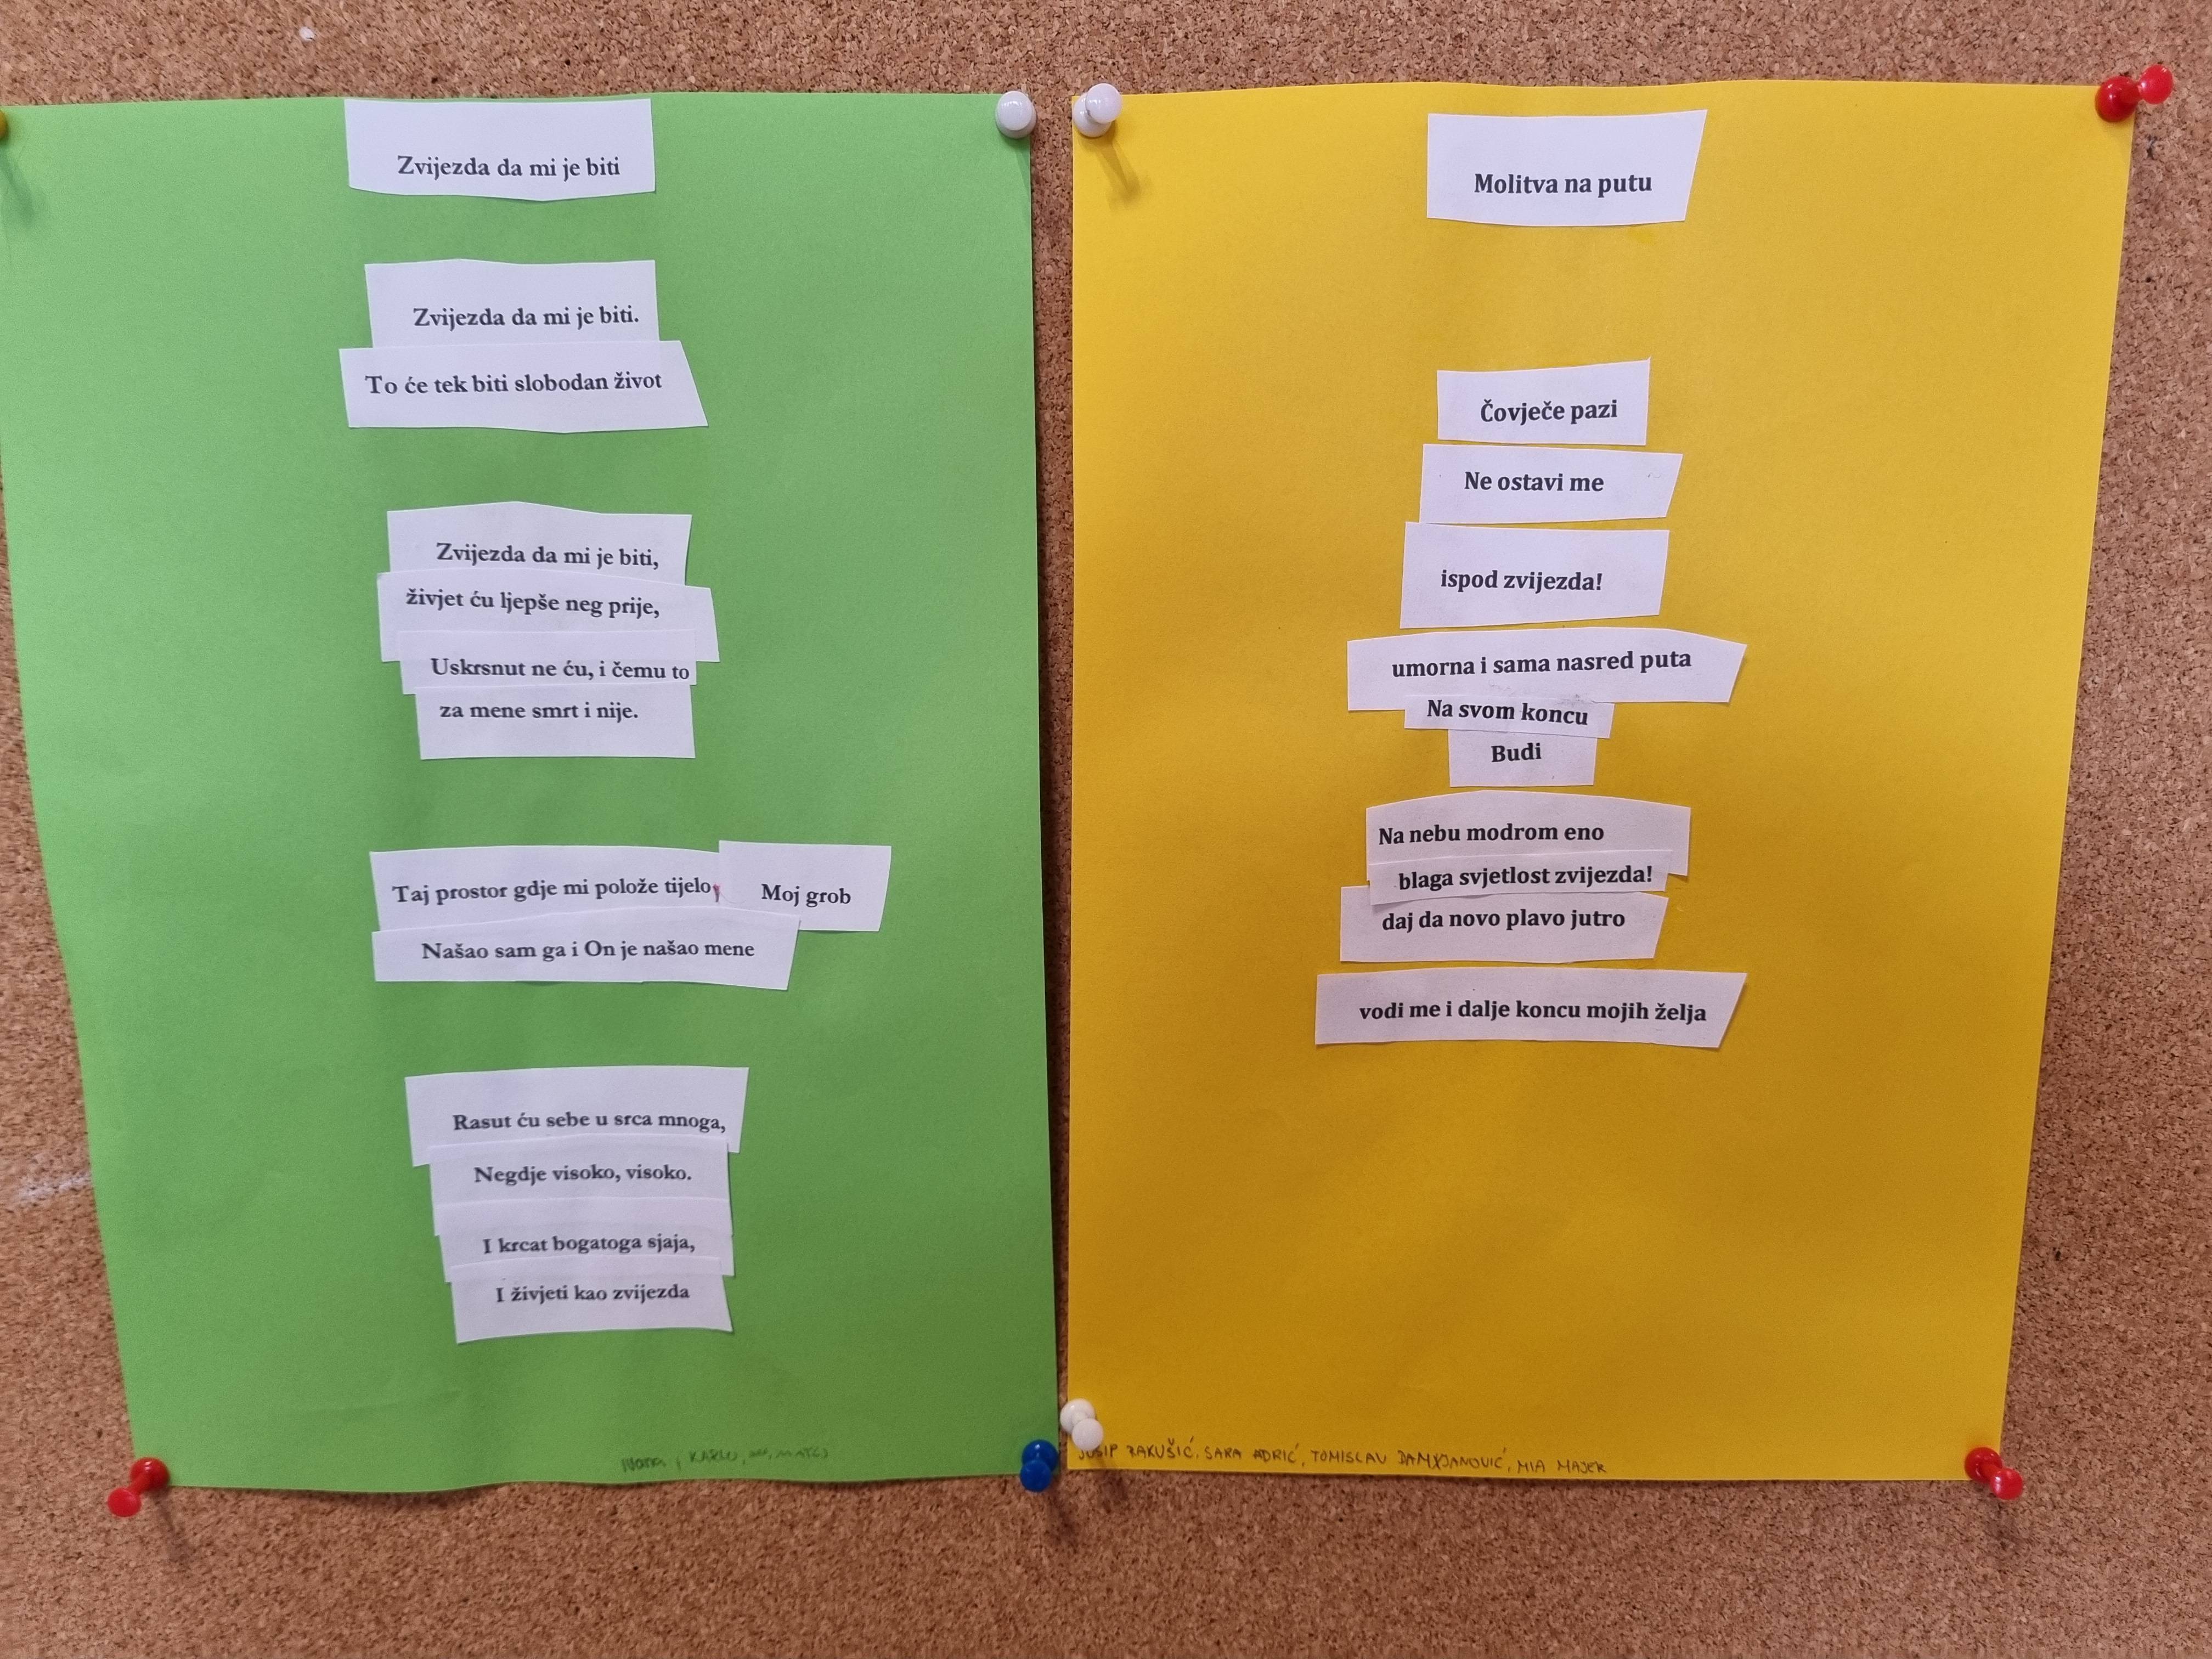 Zvijezda da mi je biti
Zvijezda da mi je biti.
To će tek biti slobodan život
Zvijezda da mi je biti,
živjet ću ljepše neg prije,
Uskrsnut ne ću, i čemu to
za mene smrt i nije.
Taj prostor gdje mi polože tijelo, Moj grob
Našao sam ga i On je našao mene
Rasut ću sebe u srca mnoga,
Negdje visoko, visoko.
I krcat bogatoga sjaja,
I živjeti kao zvijezda
Molitva na putu
Čovječe pazi
Ne ostavi me
ispod zvijezda!
umorna i sama nasred puta
Na svom koncu
Budi
Na nebu modrom eno
blaga svjetlost zvijezda!
daj da novo plavo jutro
vodi me i dalje koncu mojih želja
JOSIP RAKUŠIĆ, SARA ADRIĆ, TOMISLAV DAMJANOVIĆ, MIA MAJER